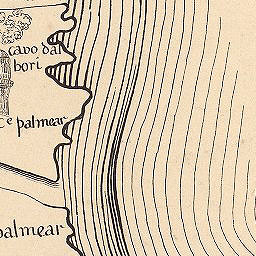 cavo dal
bori
c e palmear
palmear